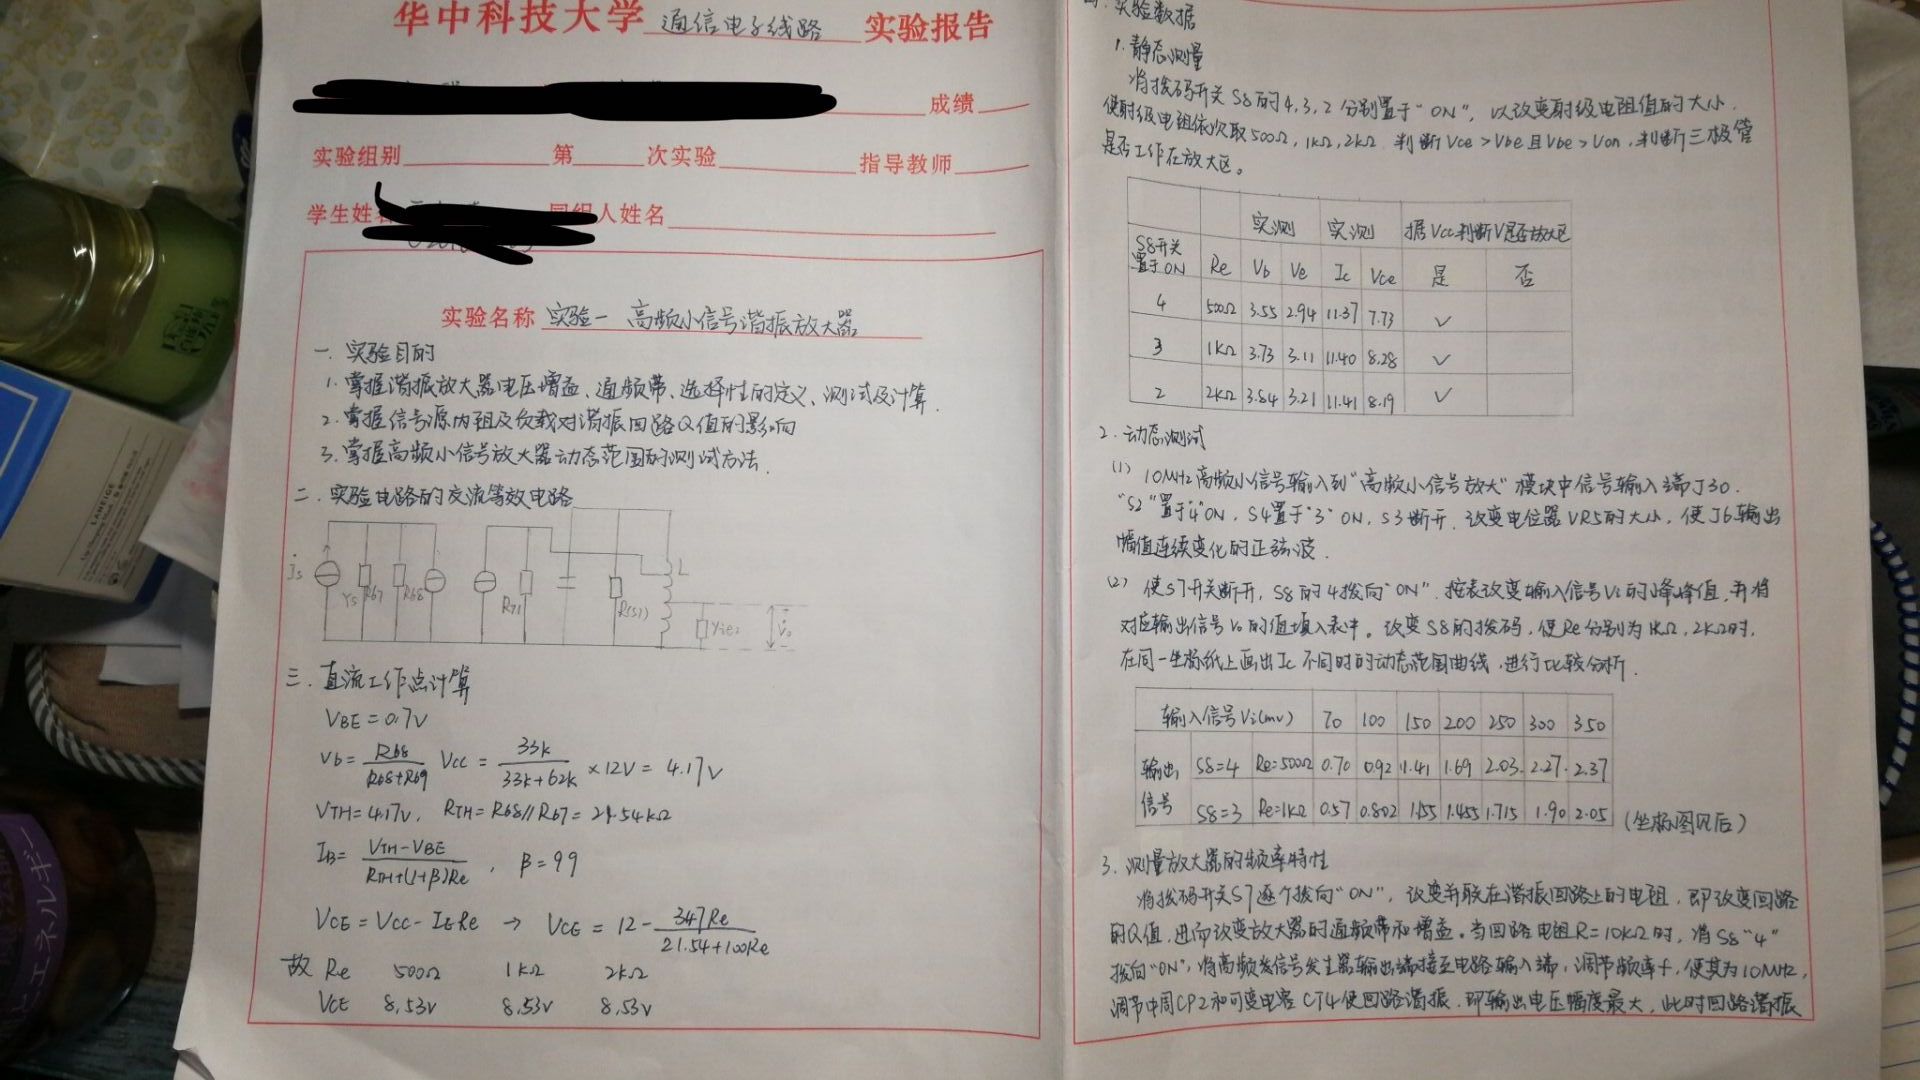 华中科技大学 通信电子线路 实验报告
成绩
实验组别 第 次实验 指导教师
学生姓名 同组人姓名
实验名称 实验一 高频小信号谐振放大器
一. 实验目的
1. 掌握谐振放大器电压增益、通频带、选择性的定义、测试及计算.
2. 掌握信号源内阻及负载对谐振回路Q值的影响
3. 掌握高频小信号放大器动态范围的测试方法.
二. 实验电路的交流等效电路
is Ys R67 R68 R71 R(S7) L Yie2 V̇o
三. 直流工作点计算
VBE = 0.7V
Vb = R68/(R68+R69) Vcc = 33k/(33k+62k) ×12V = 4.17V
VTH=4.17V, RTH=R68//R67=21.54kΩ
IB= (VTH-VBE)/(RTH+(1+β)Re) , β=99
VCE = VCC - IERe → VCE = 12 - 347Re/(21.54+100Re)
故 Re 500Ω 1KΩ 2KΩ
VCE 8.53V 8.53V 8.53V
四. 实验数据
1. 静态测量
将拨码开关S8的4,3,2分别置于“ON”, 以改变射级电阻值的大小.
使射级电阻依次取500Ω, 1kΩ, 2kΩ. 判断Vce>Vbe且Vbe>Von, 判断三极管
是否工作在放大区。
实测 实测 据Vce判断V是否放大区
S8开关置于ON Re Vb Ve Ic Vce 是 否
4 500Ω 3.55 2.94 11.37 7.73 ✓
3 1KΩ 3.73 3.11 11.40 8.28 ✓
2 2KΩ 3.84 3.21 11.41 8.19 ✓
2. 动态测试
(1) 10MHz高频小信号输入到“高频小信号放大”模块中信号输入端J30.
“S2”置于“4”ON, S4置于“3”ON, S3断开. 改变电位器VR5的大小, 使J6输出
幅值连续变化的正弦波.
(2) 使S7开关断开, S8的4拨向“ON”. 按表改变输入信号Vi的峰峰值, 并将
对应输出信号Vo的值填入表中。改变S8的拨码, 使Re分别为1kΩ, 2KΩ时,
在同一坐标纸上画出Ic不同时的动态范围曲线, 进行比较分析.
输入信号Vi(mv) 70 100 150 200 250 300 350
输出 S8=4 Re=500Ω 0.70 0.92 1.41 1.69 2.03 2.27 2.37
信号 S8=3 Re=1KΩ 0.57 0.802 1.155 1.455 1.715 1.90 2.05 (坐标图见后)
3. 测量放大器的频率特性
将拨码开关S7逐个拨向“ON”, 改变并联在谐振回路上的电阻, 即改变回路
的Q值, 进而改变放大器的通频带和增益。当回路电阻R=10KΩ时, 将S8“4”
拨向“ON”, 将高频发信号发生器输出端接至电路输入端, 调节频率f, 使其为10MHz,
调节中周CP2和可变电容CT4使回路谐振. 即输出电压幅度最大, 此时回路谐振